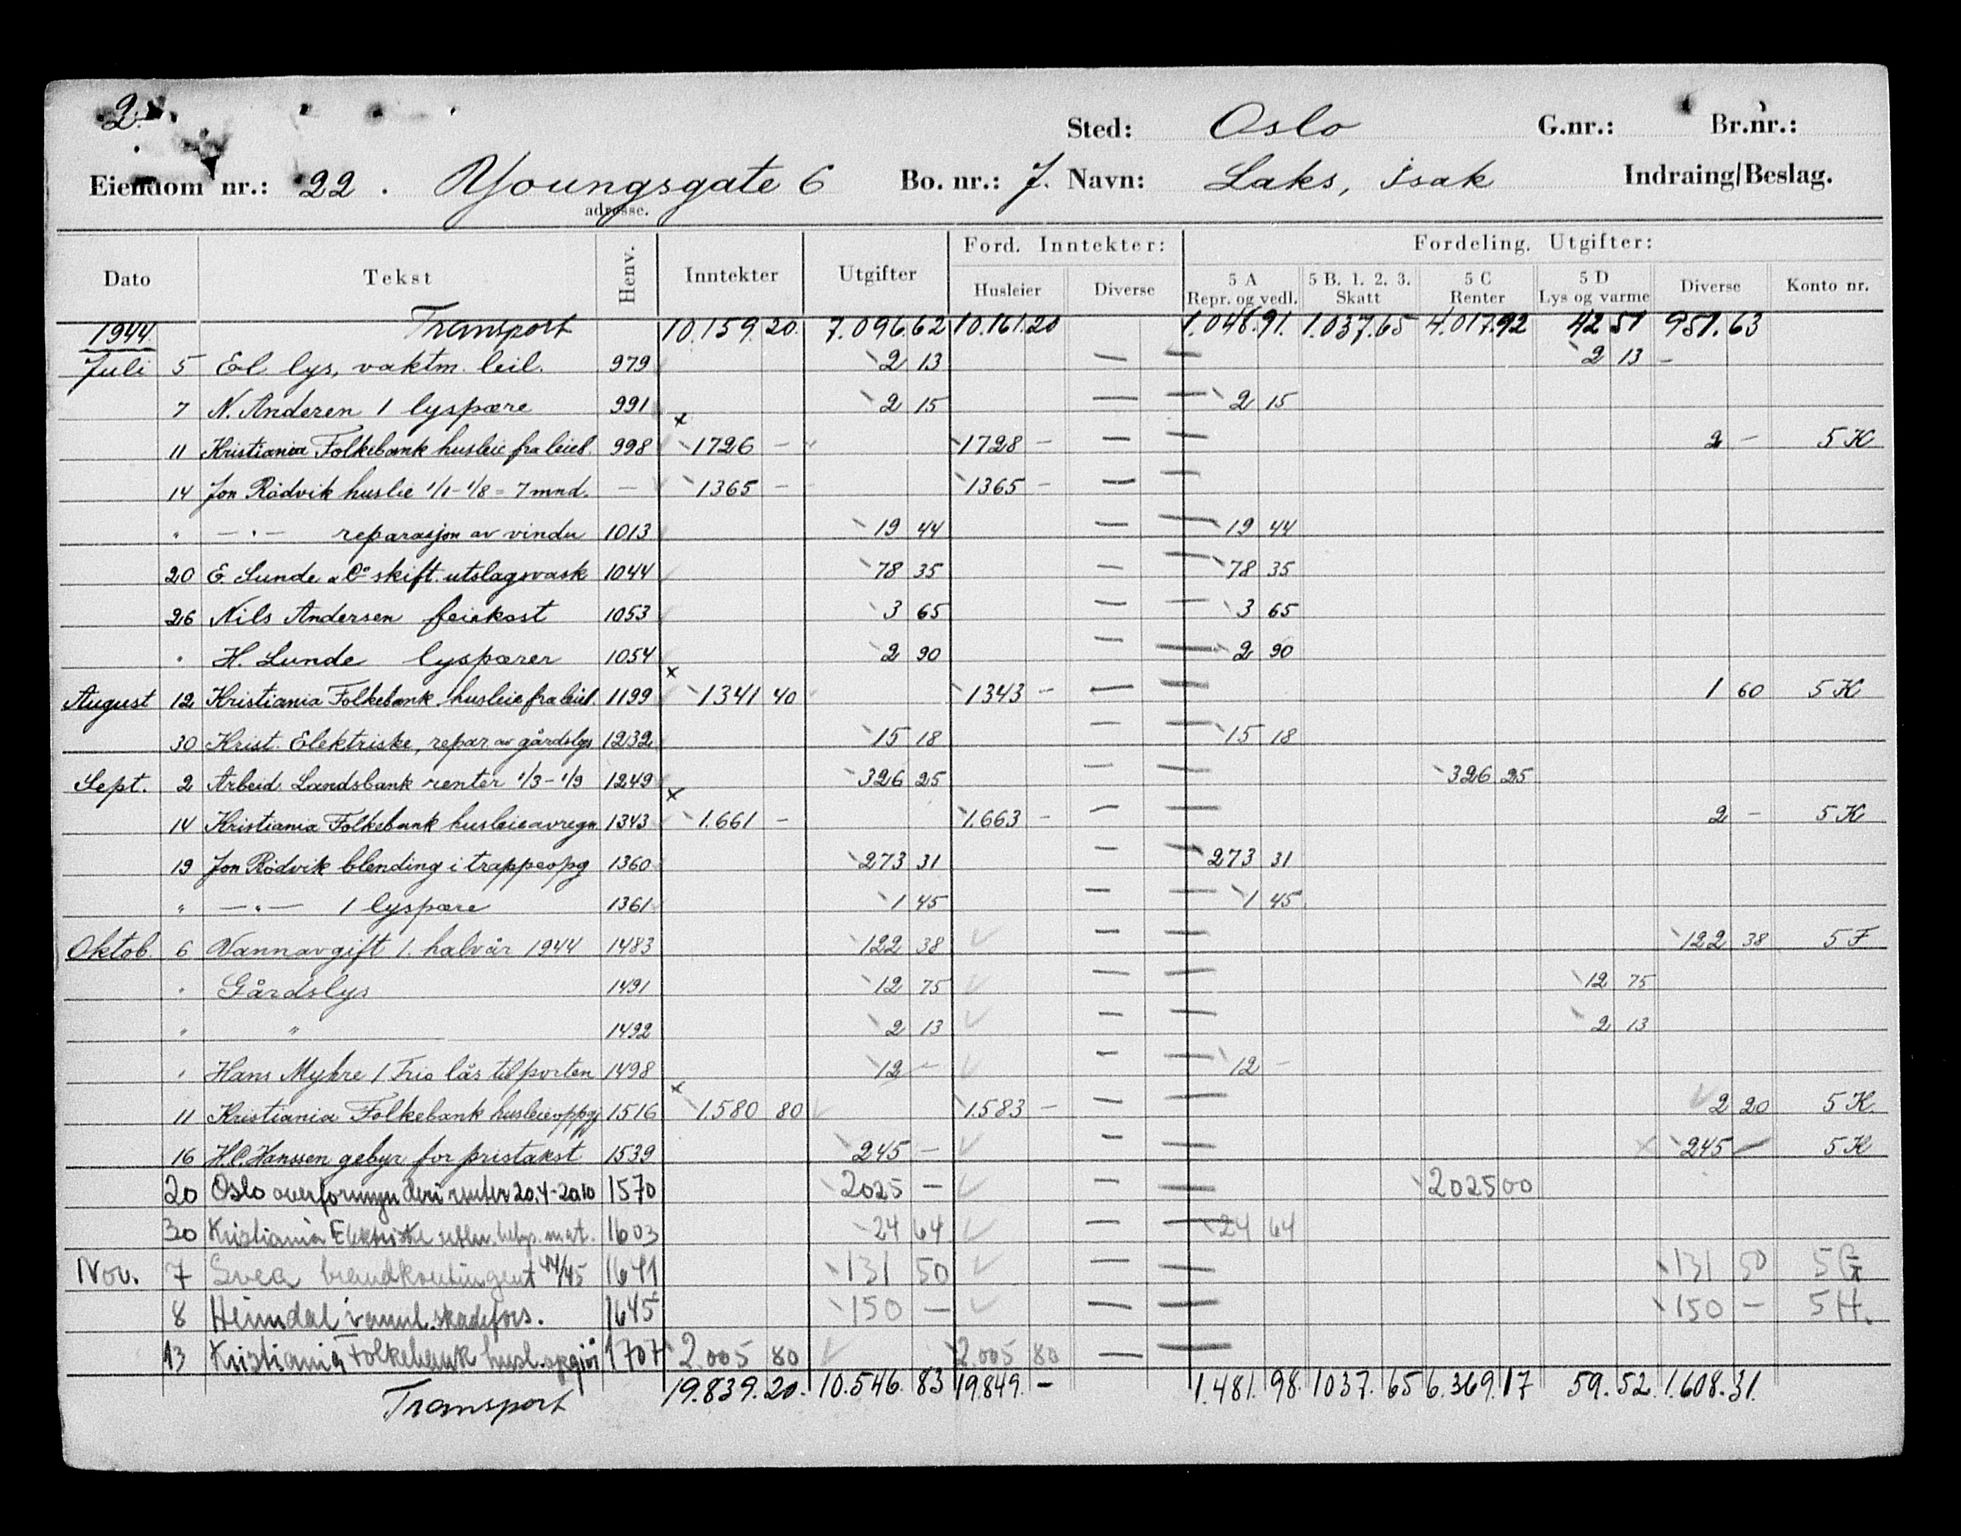 2.
Sted: Oslo G.nr.: Br.nr.:
Eiendom nr.: 22. Youngsgate 6 Bo. nr.: J. Navn: Laks, Isak Indraing/Beslag.
adresse.
Dato Tekst Henv. Inntekter Utgifter Ford. Inntekter: Fordeling. Utgifter:
Husleier Diverse 5 A Repr. og vedl. 5 B. 1. 2. 3. Skatt 5 C Renter 5 D Lys og varme Diverse Konto nr.
1944 Transport 10.159.20. 7.096.62 10.161.20 1.048.91. 1.037.65 4.017.92 42 51 951.63
Juli 5 El lys, vaktm. leil. 979 2 13 — — 2 13 –
7 N. Anderen 1 lyspære 991 2 15 — — 2 15
11 Kristiania Folkebank husleie fra leieb. 998 x 1726 – 1728 – — — 2 – 5 K
14 Jon Rödvik huslie 1/1 – 1/8 = 7 mnd. — 1365 – 1365 – — —
" — " — reparasjon av vindu 1013 19 44 — — 19 44
20 E Lunde & Co skift. utslagsvask 1044 78 35 — — 78 35
26 Nils Andersen feiekost 1053 3 65 — — 3 65
" H. Lunde lyspærer 1054 2 90 — — 2 90
August 12 Kristiania Folkebank husleie fra leieb. 1199 x 1341 40 1343 – — — 1 60 5 K
30 Krist. Elektriske, repar av gårdslys 1232 15 18 — — 15 18
Sept. 2 Arbeid. Landsbank renter 1/3 – 1/9 1249 326 25 — — 326 25
14 Kristiania Folkebank husleieavregn 1343 x 1.661 – 1.663 – — — 2 – 5 K
19 Jon Rödvik blending i trappeopg 1360 273 31 — — 273 31
" — " — 1 lyspære 1361 1 45 — — 1 45
Oktob. 6 Vannavgift 1. halvår 1944 1483 122 38 — — 122 38 5 F
" Gårdslys 1491 12 75 — — 12 75
" " 1492 2 13 — — 2 13
" Hans Myhre 1 Trio lås til porten 1498 12 – — — 12 –
11 Kristiania Folkebank husleieoppgj 1516 x 1.580 80 1.583 – — — 2 20 5 K.
16 H.C. Hanssen gebyr for pristakst 1539 245 – — — 245 – 5 K
20 Oslo renter 20.4–20.10 1570 2025 – — — 2025 00
30 Kristiania Elektriske mat. 1603 24 64 — — 24 64
Nov. 7 Svea brandkontingent 44/45 1641 131 50 — — 131 50 5 G
8 Heimdal vannl.skadefors. 1645 150 – — — 150 – 5 H.
13 Kristiania Folkebank husl. 1707 2.005 80 2.005 80 — —
Transport 19.839.20. 10.546.83 19.849. – 1.481.98. 1037.65 6.369.17 59.52. 1.608.31.